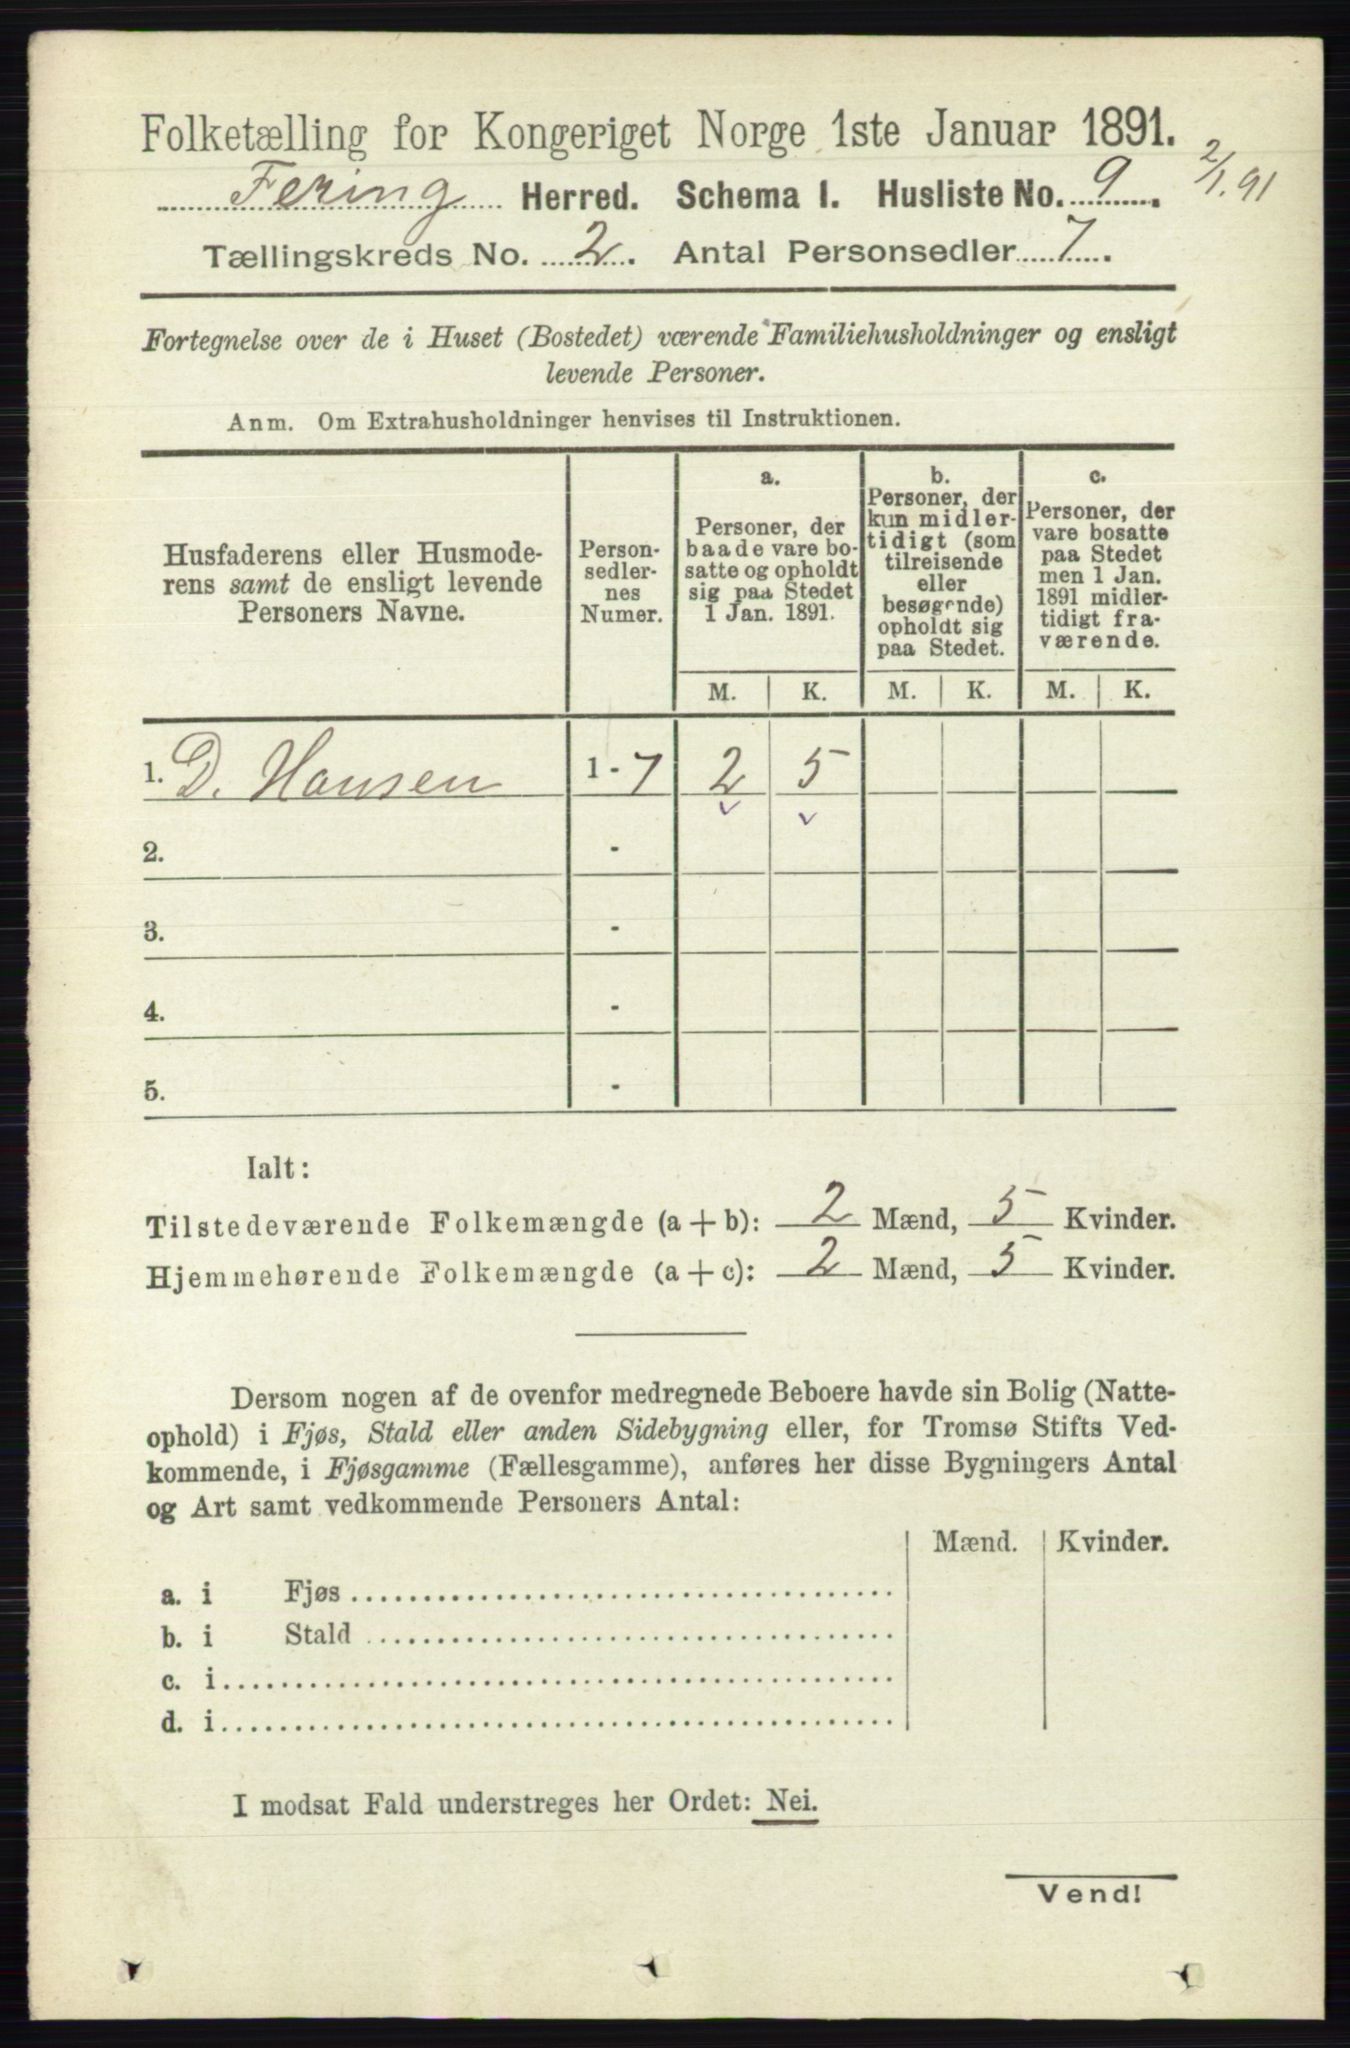 Folketælling for Kongeriget Norge 1ste Januar 1891.
2/1.91
Fering Herred. Schema I. Husliste No. 9.
Tællingskreds No. 2. Antal Personsedler 7.
Fortegnelse over de i Huset (Bostedet) værende Familiehusholdninger og ensligt
levende Personer.
Anm. Om Extrahusholdninger henvises til Instruktionen.
Husfaderens eller Husmode-
rens samt de ensligt levende
Personers Navne.
Person-
sedler-
nes
Numer.
a.
Personer, der
baade vare bo-
satte og opholdt
sig paa Stedet
1 Jan. 1891.
b.
Personer, der
kun midler-
tidigt (som
tilreisende
eller
besøgende)
opholdt sig
paa Stedet.
c.
Personer, der
vare bosatte
paa Stedet
men 1 Jan.
1891 midler-
tidigt fra-
værende.
M. K. M. K. M. K.
1. D. Hansen 1 - 7 2 5
2. -
3. -
4. -
5. -
Ialt:
Tilstedeværende Folkemængde (a + b): 2 Mænd, 5 Kvinder.
Hjemmehørende Folkemængde (a + c): 2 Mænd, 5 Kvinder.
Dersom nogen af de ovenfor medregnede Beboere havde sin Bolig (Natte-
ophold) i Fjøs, Stald eller anden Sidebygning eller, for Tromsø Stifts Ved-
kommende, i Fjøsgamme (Fællesgamme), anføres her disse Bygningers Antal
og Art samt vedkommende Personers Antal:
Mænd. Kvinder.
a. i Fjøs
b. i Stald
c. i
d. i
I modsat Fald understreges her Ordet: Nei.
Vend!